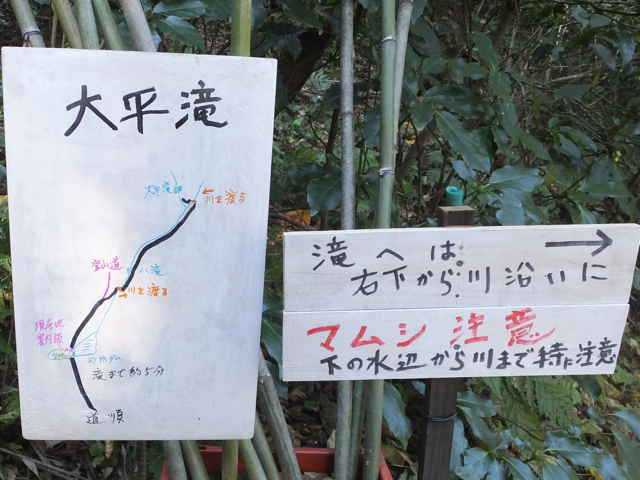 大平滝
大平滝
川を渡る
登山道
小滝
川を渡る
現在地
滝まで約5分
道順
滝へは
右下から川沿いに
マムシ注意
下の水辺から川まで特に注意